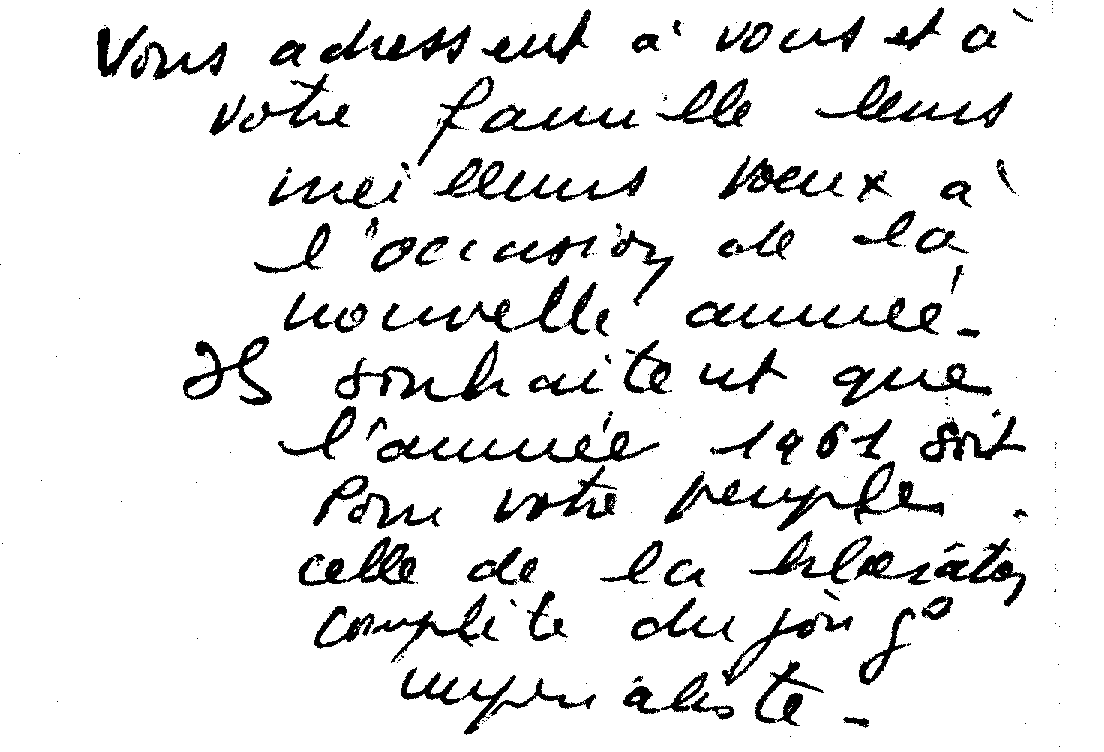 Vous adressent à vous et à
votre famille leurs
meilleurs voeux à
l'occasion de la
nouvelle année.
Ils souhaitent que
l'année 1961 soit
Pour votre peuple
celle de la libération
complète du joug
imperialiste.